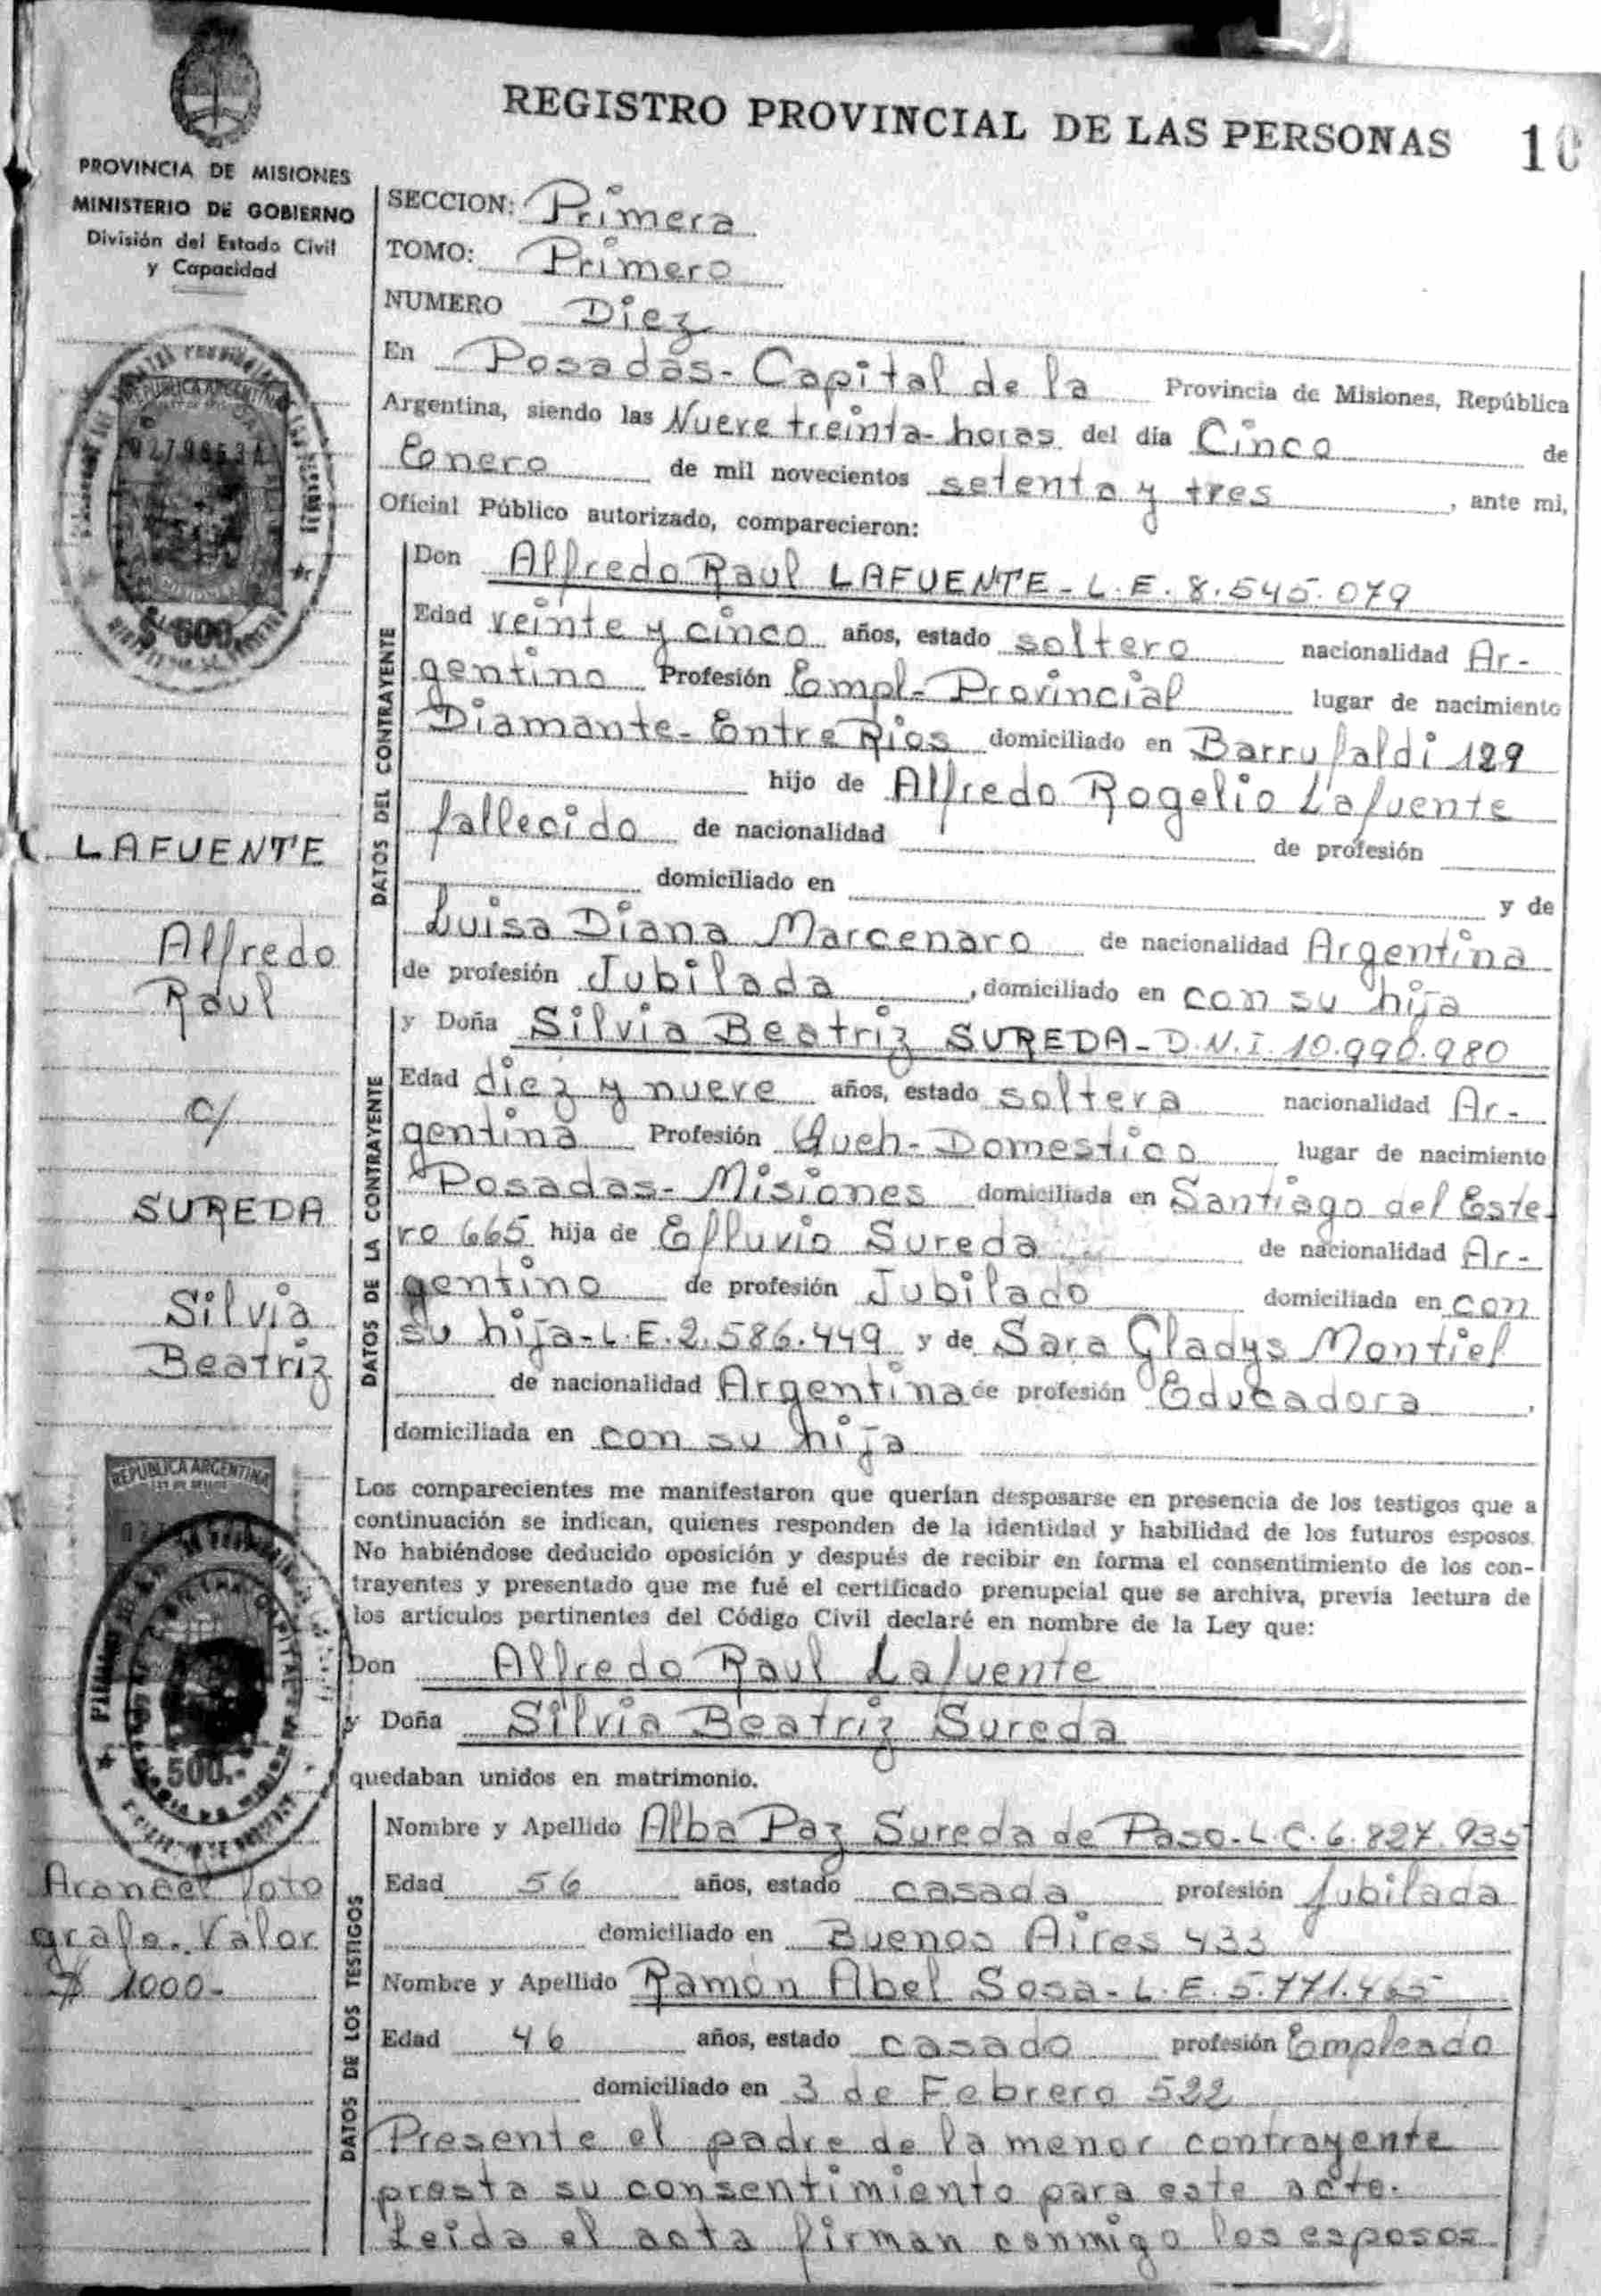 REGISTRO PROVINCIAL DE LAS PERSONAS 10
PROVINCIA DE MISIONES
MINISTERIO DE GOBIERNO
División del Estado Civil
y Capacidad
SECCION: Primera
TOMO: Primero
NUMERO Diez
En Posadas- Capital de la Provincia de Misiones, República
Argentina, siendo las Nueve treinta- horas del día Cinco de
Enero de mil novecientos setenta y tres, ante mi,
Oficial Público autorizado, comparecieron:
DATOS DEL CONTRAYENTE
Don Alfredo Raul LAFUENTE- L.E. 8.545.079
Edad veinte y cinco años, estado soltero nacionalidad Ar-
gentino Profesión Empl- Provincial lugar de nacimiento
Diamante- Entre Rios domiciliado en Barrufaldi 129
hijo de Alfredo Rogelio Lafuente
fallecido de nacionalidad de profesión
domiciliado en y de
Luisa Diana Marcenaro de nacionalidad Argentina
de profesión Jubilada, domiciliado en con su hija
DATOS DE LA CONTRAYENTE
y Doña Silvia Beatriz SUREDA- D.N.I. 10.990.980
Edad diez y nueve años, estado soltera nacionalidad Ar-
gentina Profesión Queh- Domestico lugar de nacimiento
Posadas- Misiones domiciliada en Santiago del Este-
ro 665 hija de Efluvio Sureda de nacionalidad Ar-
gentino de profesión Jubilado domiciliada en con
su hija- L.E. 2.586.449 y de Sara Gladys Montiel
de nacionalidad Argentina de profesión Educadora,
domiciliada en con su hija
Los comparecientes me manifestaron que querían desposarse en presencia de los testigos que a
continuación se indican, quienes responden de la identidad y habilidad de los futuros esposos.
No habiéndose deducido oposición y después de recibir en forma el consentimiento de los con-
trayentes y presentado que me fué el certificado prenupcial que se archiva, previa lectura de
los artículos pertinentes del Código Civil declaré en nombre de la Ley que:
Don Alfredo Raul Lafuente
y Doña Silvia Beatriz Sureda
quedaban unidos en matrimonio.
DATOS DE LOS TESTIGOS
Nombre y Apellido Alba Paz Sureda de Paso- L.C. 6.827.935
Edad 56 años, estado casada profesión Jubilada
domiciliado en Buenos Aires 433
Nombre y Apellido Ramón Abel Sosa- L.E. 5.771.465
Edad 46 años, estado casado profesión Empleado
domiciliado en 3 de Febrero 522
Presente el padre de la menor contrayente
presta su consentimiento para este acto.
Leida el acta firman conmigo los esposos
REPUBLICA ARGENTINA
$ 500.
LAFUENTE
Alfredo
Raul
c/
SUREDA
Silvia
Beatriz
REPUBLICA ARGENTINA
500.-
Arancel foto
grafo. Valor
$ 1000-